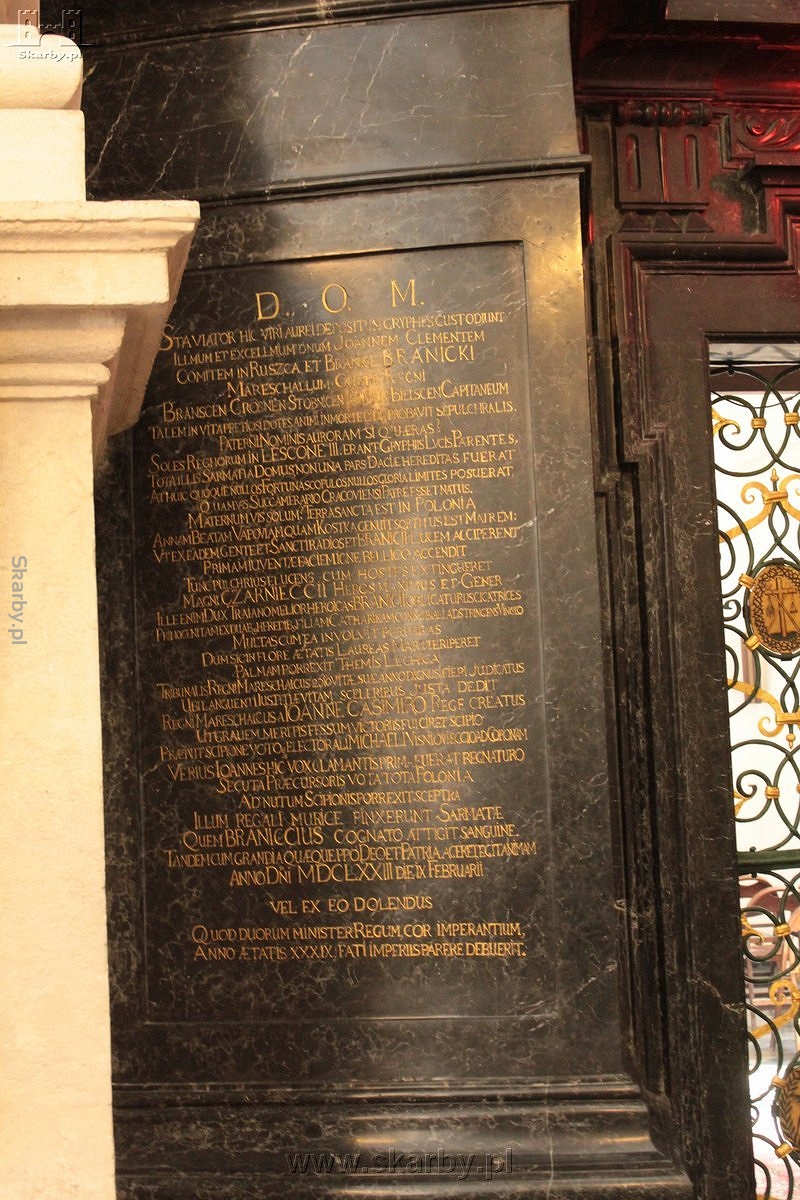 Skarby.pl
D. O. M.
STA VIATOR HIC VIRI AUREI DEPOSITI GRYPHES CUSTODIUNT
ILLMUM ET EXCELLMUM DNUM JOANNEM CLEMENTEM
COMITEM IN RUSZCA ET BRANICE BRANICKI
MARESCHALLUM REGNI
BRANSCEN CROSNEN STOBNICEN BIELSCEM CAPITANEUM
TALEM IN VITA DOTES ANIMI PROBAVIT SEPULCHRALIS.
PATERNI NOMINIS AURORAM SI QUÆRAS?
SOLES REGIORUM IN LESCONE III. ERANT GRYPHIS LUCIS PARENTES,
TOTA ILLIS SARMATIA DOMUS NON UNA PARS DACLE HEREDITAS FUERAT
ATHUC QUOQUE NULLOS FORTUNA SCOPULOS NULLOS GLORIA LIMITES POSUERAT
QUAMVIS SUCCAMERARIO CRACOVIENSI PATRE ESSET NATUS.
MATERNUM VIS SOLUM? TERRA SANCTA EST IN POLONIA
ANNAM BEATAM VAPOVIAM QUAM KOSTKA GENUIT SORTITUS EST MATREM:
VT EX EADEM GENTE ET SANCTI RADIOS ET BRANICII LUCEM ACCIPERENT
PRIMAM IUVENTÆ FACEM IGNE BELLICO ACCENDIT
TUNC PULCHRIUS ELUCENS CUM HOSTES EXTINGUERET
MAGNI CZARNIECCII HEROS MAXIMUS ET GENER
ILLE ENIM DUX TRAIANO MELIOR HEROICAS BRANICII CICATRICES
FILIAM CATHARINAM
MULTAS CUM EA INVOLVIT PURPURAS
DUM SIC IN FLORE ÆTATIS LAUREAS MARTI ERIPERET
PALMAM PORREXIT THEMIS LECHICA
TRIBUNALIS REGNI MARESCHALCUS SUÆ ANNO DIGNUS FIERI JUDICATUS
UBI LANGUENTI IUSTITIÆ VITAM SCELERIBUS JUSTA DEDIT
REGNI MARESCHALCUS A IOANNE CASIMIRO REGE CREATUS
UT GRAUEM MERITIS FESSUM VICTORIIS FULCIRET SCIPIO
PRÆIVIT SCIPIONE VOTO ELECTORALI MICHAELI AD CORONAM
VERIUS IOANNES HIC VOX CLAMANTIS PRIMA FUERAT REGNATURO
SECUTA PRÆCURSORIS VOTA TOTA POLONIA
AD NUTUM SCIPIONIS PORREXIT SCEPTRA
ILLUM REGALI MURICE FINXERUNT SARMATÆ
QUEM BRANICCIUS COGNATO ATTIGIT SANGUINE.
TANDEM CUM GRANDIA QUÆQUE PRO DEO ET PATRIA
ANNO DÑI MDCLXXIII DIE IX FEBRUARII
VEL EX EO DOLENDUS
QUOD DUORUM MINISTER REGUM, COR IMPERANTIUM,
ANNO ÆTATIS XXXIX FATI IMPERIIS PARERE DEBUERIT.
Skarby.pl
www.skarby.pl